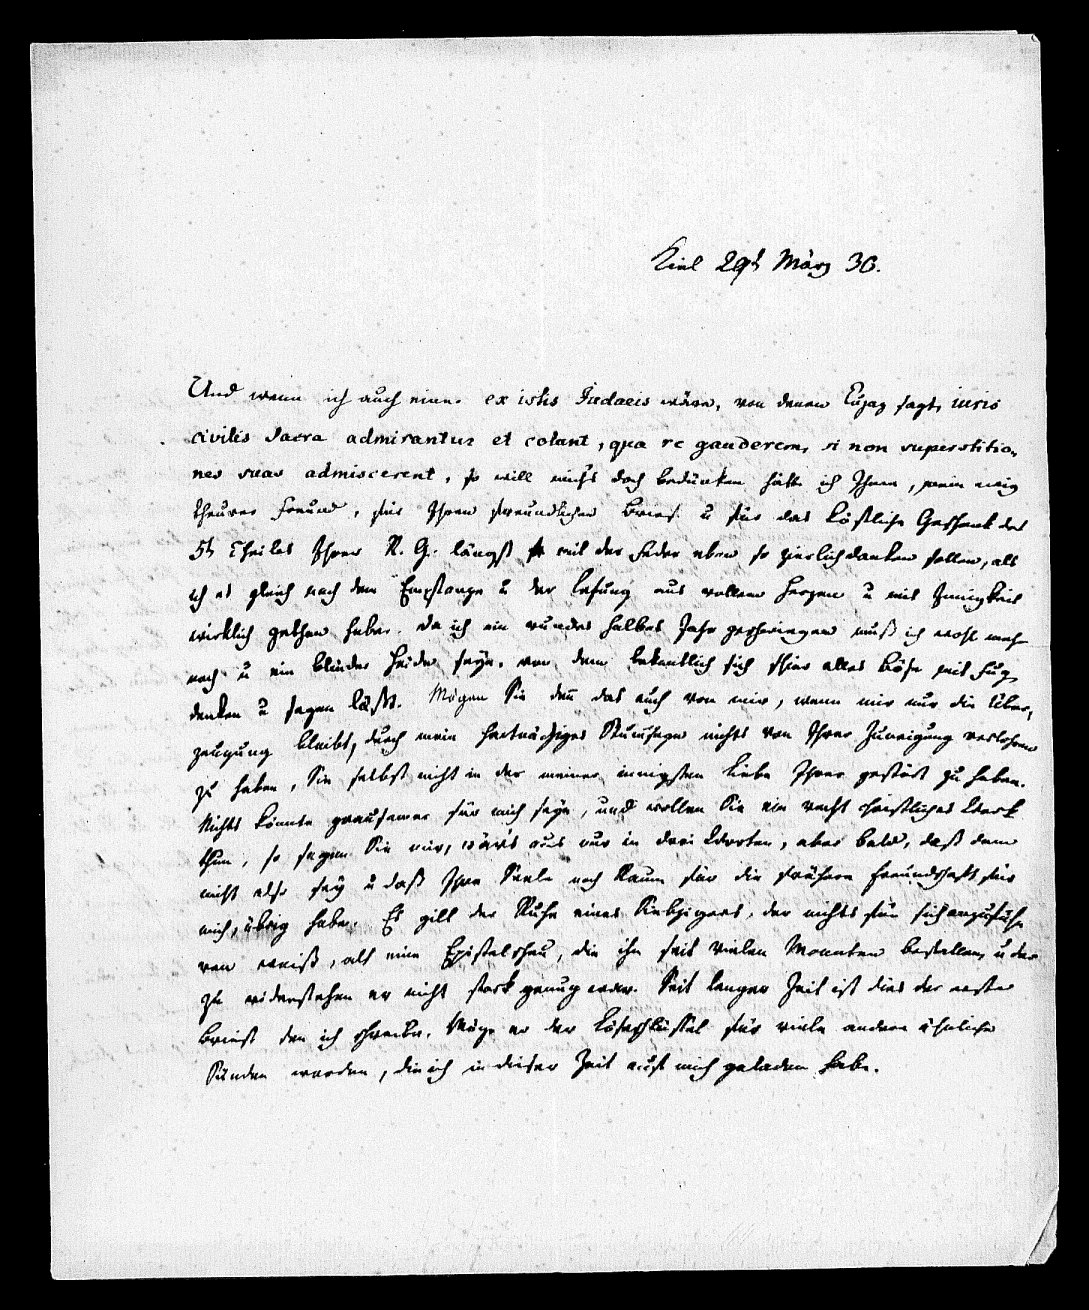 Kiel 29t März 30.
Und wenn ich auch einer ex istis Judaeis wäre, von denen Cujaz sagt, iuris
civilis sacra admirantur et colant, qua re gauderem, si non superstitio,
nes suas admiscerent, so will mich's doch bedünken hätte ich Ihnen, mein
theurer Freund, für Ihren freundlichen Brief u für das köstliche Geschenk des
5t Theiles Ihrer R. G. längst mit der Feder eben so zierlich danken sollen, als
ich es gleich nach dem Empfange u der Lesung aus vollem Herzen u mit Innigkeit
wirklich gethan habe. Da ich ein rundes halbes Jahr geschwiegen muß ich wohl mehr
noch u ein blinder Heide seyn, von dem bekantlich sich schier alles Böse mit Fug
denken u sagen läßt. Mögen Sie den das auch von mir, wenn mir nur die Über,
zeugung bleibt, durch mein hartnäckiges Stumseyn nichts von Ihrer Zuneigung verlohren
zu haben, Sie selbst nicht in der meiner innigsten Liebe Ihrer gestört zu haben.
Nichts könnte grausamer für mich seyn, und wollen Sie ein recht christliches Werk
thun, so sagen Sie mir, wär's auch nur in drei Worten, aber bald, daß dem
nicht also sey u daß Ihre Seele noch Raum für die frühere Freundschaft für
mich übrig habe. Es gilt der Ruhe eines Siebzigers, der nichts für sich anzufüh,
ren weiß, als eine Epistelscheu, die ihn seit vielen Monaten befallen, u der
zu widerstehen er nicht stark genug war. Seit langer Zeit ist dies der erste
Brief den ich schreibe. Möge er der Löseschlüssel für viele andere ähnliche
Sünden werden, die ich in dieser Zeit auf mich geladen habe.